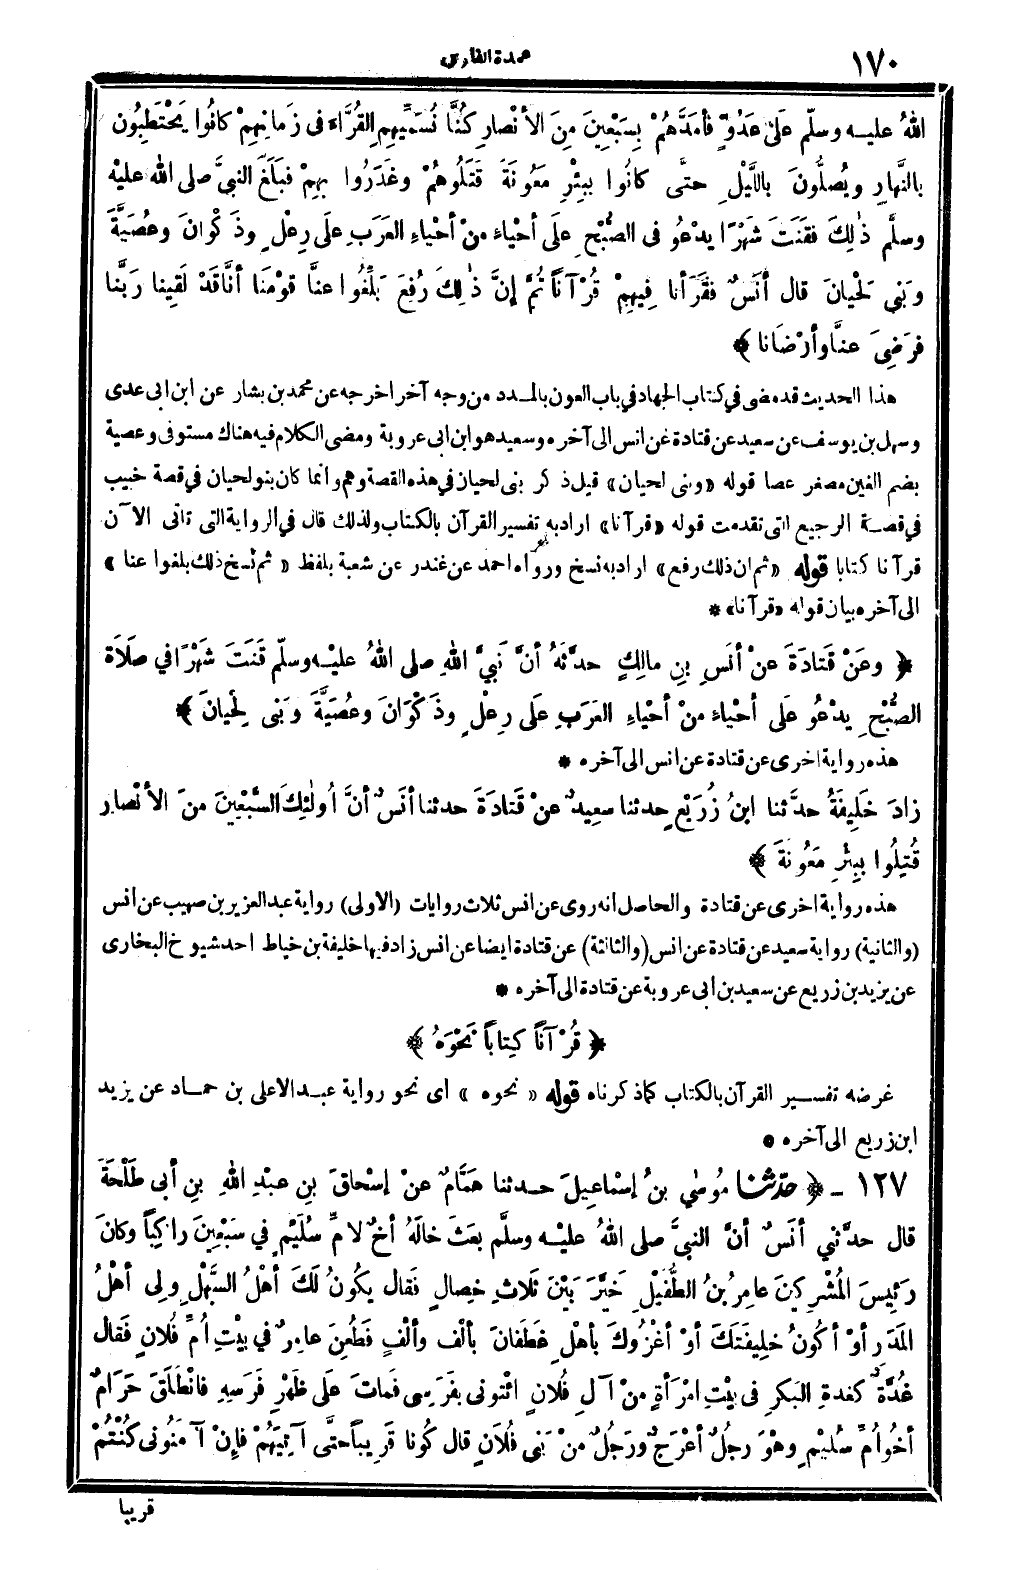 ١٧٠
عمدة القارى
اللهُ عليه وسلّم عَلَى عَدُوٍّ فأمَدَّهُمْ بِسَبْعِينَ مِنَ الأنْصارِ كُنَّا نُسَمِّيهِمِ القُرَّاءَ فى زَمانِهِمْ كانُوا يَحْتَطِبُون
بالنَّهارِ ويُصلُّونَ باللَّيْلِ حتَّى كانُوا ببِئْرِ مَعُونَةَ قَتَلُوهُمْ وغَدَرُوا بِهِمْ فبَلَغَ النبيَّ صلى الله عليْه
وسلَّم ذٰلِكَ فقَنَتَ شَهْرًا يدْعُو فى الصُّبْحِ عَلَى أحْياءٍ منْ أحْياءِ العَرَبِ عَلَى رِعْلٍ وذَكْوَانَ وعُصَيَّةَ
وبَنِي لَحْيانَ قال أنَسٌ فقَرَأنا فِيهِمْ قُرْآناً ثُمَّ إنَّ ذٰلِكَ رُفِعَ بَلِّغُوا عنَّا قوْمَنا أنَّا قَدْ لَقِينا رَبَّنا
فرَضِيَ عنَّا وأرْضَانا ﴾
هذا الحديث قد مضى في كتاب الجهاد في باب العون بالمدد من وجه آخر اخرجه عن محمد بن بشار عن ابن ابى عدى
وسهل بن يوسف عن سعيد عن قتادة عن انس الى آخره وسعيد هو ابن ابى عروبة ومضى الكلام فيه هناك مستوفى وعصية
بضم العين مصغر عصا قوله «وبنى لحيان» قيل ذكر بنى لحيان في هذه القصة وهم وانما كان بنو لحيان في قصة خبيب
في قصة الرجيع التى تقدمت قوله «قرآنا» اراد به تفسير القرآن بالكتاب ولذلك قال في الرواية التى تاتى الآن
قرآنا كتابا قوله «ثم ان ذلك رفع» اراد به نسخ ورواه احمد عن غندر عن شعبة بلفظ «ثم نسخ ذلك بلغوا عنا»
الى آخره بيان قوله «قرآنا» *
﴿ وعَنْ قَتادَةَ عنْ أنَسِ بنِ مالِكٍ حدَّثَهُ أنَّ نَبِيَّ اللهِ صلى اللهُ عليْه وسلّم قَنَتَ شَهْرًا في صَلاَةِ
الصُّبْحِ يدْعُو عَلَى أحْياءٍ منْ أحْياءِ العَرَبِ عَلَى رِعْلٍ وذَكْوَانَ وعُصَيَّةَ وبَنى لَحْيانَ ﴾
هذه رواية اخرى عن قتادة عن انس الى آخره *
زادَ خَلِيفَةُ حدَّثنا ابنُ زُرَيْعٍ حدثنا سعِيدٌ عنْ قَتادَةَ حدثنا أنَسٌ أنَّ أُولٰئِكَ السَّبْعِينَ منَ الأنْصارِ
قُتِلُوا ببِئْرِ مَعُونَةَ ﴾
هذه رواية اخرى عن قتادة والحاصل انه روى عن انس ثلاث روايات (الاولى) رواية عبد العزيز بن صهيب عن انس
(والثانية) رواية سعيد عن قتادة عن انس (والثالثة) عن قتادة ايضا عن انس زاد فيها خليفة بن خياط احد شيوخ البخارى
عن يزيد بن زريع عن سعيد بن أبى عروبة عن قتادة الى آخره *
﴿ قُرْآناً كِتاباً نَحْوَهُ ﴾
غرضه تفسير القرآن بالكتاب كما ذكرناه قوله «نحوه» اى نحو رواية عبد الاعلى بن حماد عن يزيد
ابن زريع الى آخره *
١٢٧ - ﴿ حدّثنا مُوسٰى بنُ إسْماعِيلَ حدثنا هَمَّامٌ عنْ إسْحاقَ بنِ عبْدِ اللهِ بنِ أبى طَلْحَةَ
قال حدَّثني أنَسٌ أنَّ النبيَّ صلى اللهُ عليْه وسلَّم بعَثَ خالَهُ أخٌ لاُمِّ سُلَيْمٍ في سَبْعِينَ رَاكِباً وكانَ
رَئِيسَ المُشْرِكِينَ عامِرُ بنُ الطُّفَيْلِ خَيَّرَ بَيْنَ ثَلاثِ خِصالٍ فَقال يكُونُ لَكَ أهْلُ السَّهْلِ ولِى أهْلُ
المَدَرِ أوْ أكُونُ خلِيفَتَكَ أوْ أغْزُوكَ بأهْلِ غَطَفانَ بألْفٍ وألْفٍ فَطُعِنَ عامِرٌ في بيْتِ أُمِّ فُلانٍ فَقال
غُدَّةٌ كغُدةِ البَكْرِ فى بيْتِ امْرَأةٍ منْ آلِ فُلانٍ ائتُونى بفَرَسِى فماتَ عَلَى ظَهْرِ فَرَسِهِ فانْطَلَقَ حَرَامٌ
أخُو أُمِّ سُلَيْمٍ وهْوَ رجُلٌ أعْرَجُ ورَجُلٌ منْ بَنى فُلاَنٍ قال كُونا قَرِيباً حتَّى آتِيَهُمْ فإنْ آمَنُونى كُنْتُمْ
قريبا